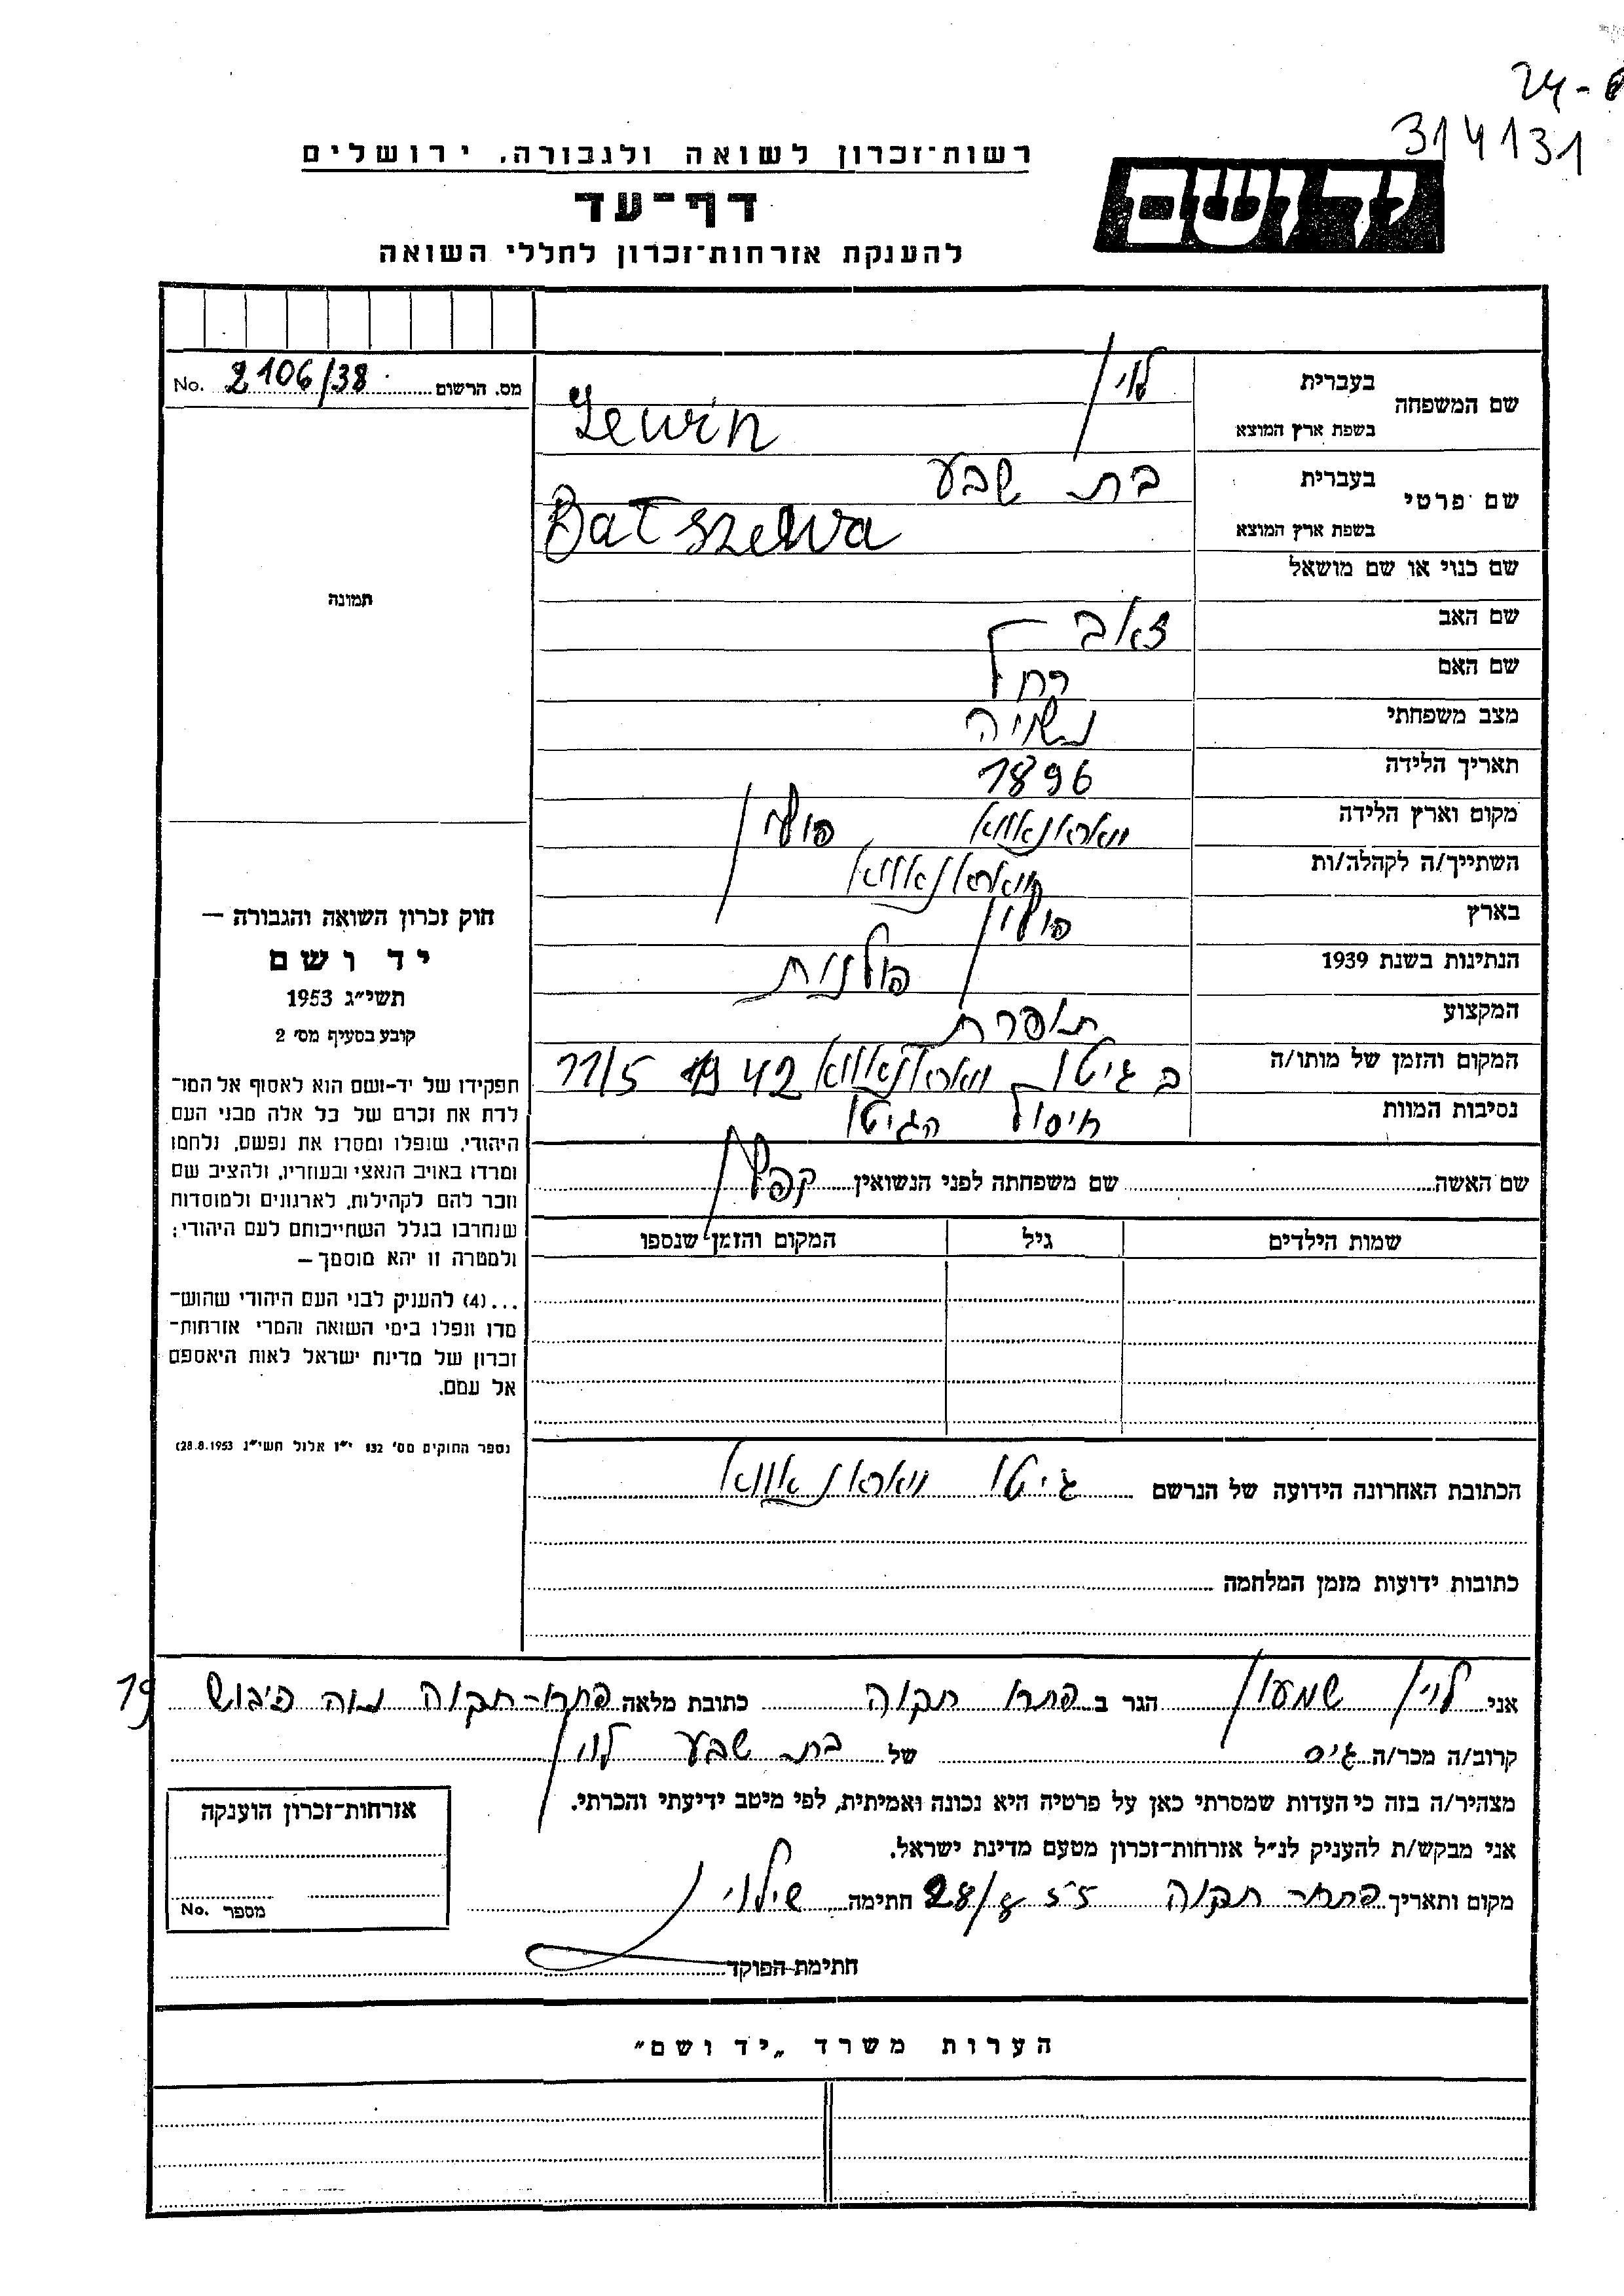 24-
314131
רשות־זכרון לשואה ולגבורה, ירושלים
יד ושם
דף־עד
להענקת אזרחות־זכרון לחללי השואה
מס. הרשום 2106/38 No.
שם המשפחה
בעברית לוין
בשפת ארץ המוצא Lewin
שם פרטי
בעברית בת שבע
בשפת ארץ המוצא Batszewa
שם כנוי או שם מושאל
שם האב זאב
שם האם רחל
מצב משפחתי נשויה
תאריך הלידה 1896
מקום וארץ הלידה וואראנאווא פולין
השתייך/ה לקהלה/ות וואראנאווא
בארץ פולין
הנתינות בשנת 1939 פולנית
המקצוע תופרת
המקום והזמן של מותו/ה בגיטו וואראנאווא 11/5 1942
נסיבות המוות חיסול הגיטו
שם האשה שם משפחתה לפני הנשואין קפלן
שמות הילדים גיל המקום והזמן שנספו
תמונה
חוק זכרון השואה והגבורה —
יד ושם
תשי״ג 1953
קובע בסעיף מס׳ 2
תפקידו של יד-ושם הוא לאסוף אל המו־
לדת את זכרם של כל אלה מבני העם
היהודי, שנפלו ומסרו את נפשם, נלחמו
ומרדו באויב הנאצי ובעוזריו, ולהציב שם
וזכר להם לקהילות, לארגונים ולמוסדות
שנחרבו בגלל השתייכותם לעם היהודי;
ולמטרה זו יהא מוסמך —
...(4) להעניק לבני העם היהודי שהוש־
מדו ונפלו בימי השואה והמרי אזרחות־
זכרון של מדינת ישראל לאות היאספם
אל עמם.
(ספר החוקים מס׳ 132 י״ז אלול תשי״ג 28.8.1953)
הכתובת האחרונה הידועה של הנרשם גיטו וואראנאווא
כתובות ידועות מזמן המלחמה
אני לוין שמעון הגר ב פתח תקוה כתובת מלאה פתח-תקוה נוה כיבוש 19
קרוב/ה מכר/ה גיס של בת שבע לוין
מצהיר/ה בזה כי העדות שמסרתי כאן על פרטיה היא נכונה ואמיתית, לפי מיטב ידיעתי והכרתי.
אני מבקש/ת להעניק לנ״ל אזרחות־זכרון מטעם מדינת ישראל.
מקום ותאריך פתח תקוה 28/8 55 חתימה ש. לוין
חתימת הפוקד
אזרחות־זכרון הוענקה
מספר No.
הערות משרד „יד ושם״